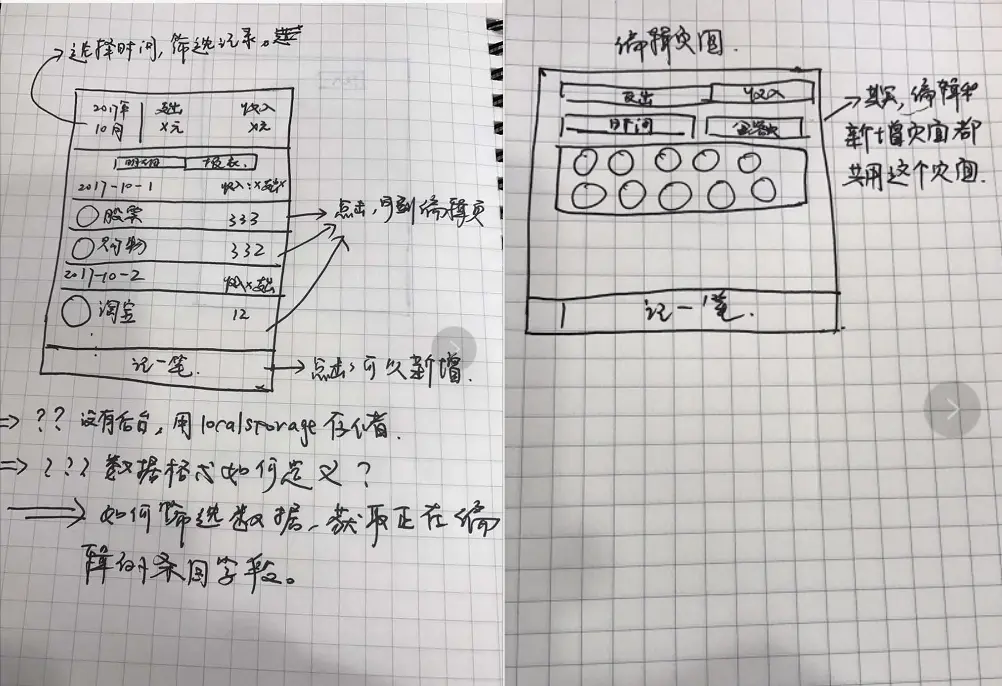 选择时间,筛选记录。
2017年 支出 收入
10月 X元 X元
明细 报表
2017-10-1 收入:x支出x
股票 333
购物 332
点击,可到编辑页
2017-10-2 收入x支出
淘宝 12
记一笔.
点击,可以新增.
=> ?? 没有后台,用localstorage存储.
=> ??? 数据格式如何定义?
如何筛选数据,获取正在编
辑的条目字段。
编辑页面.
支出 收入
时间 金额
记一笔.
其实,编辑和
新增页面都
共用这个页面.